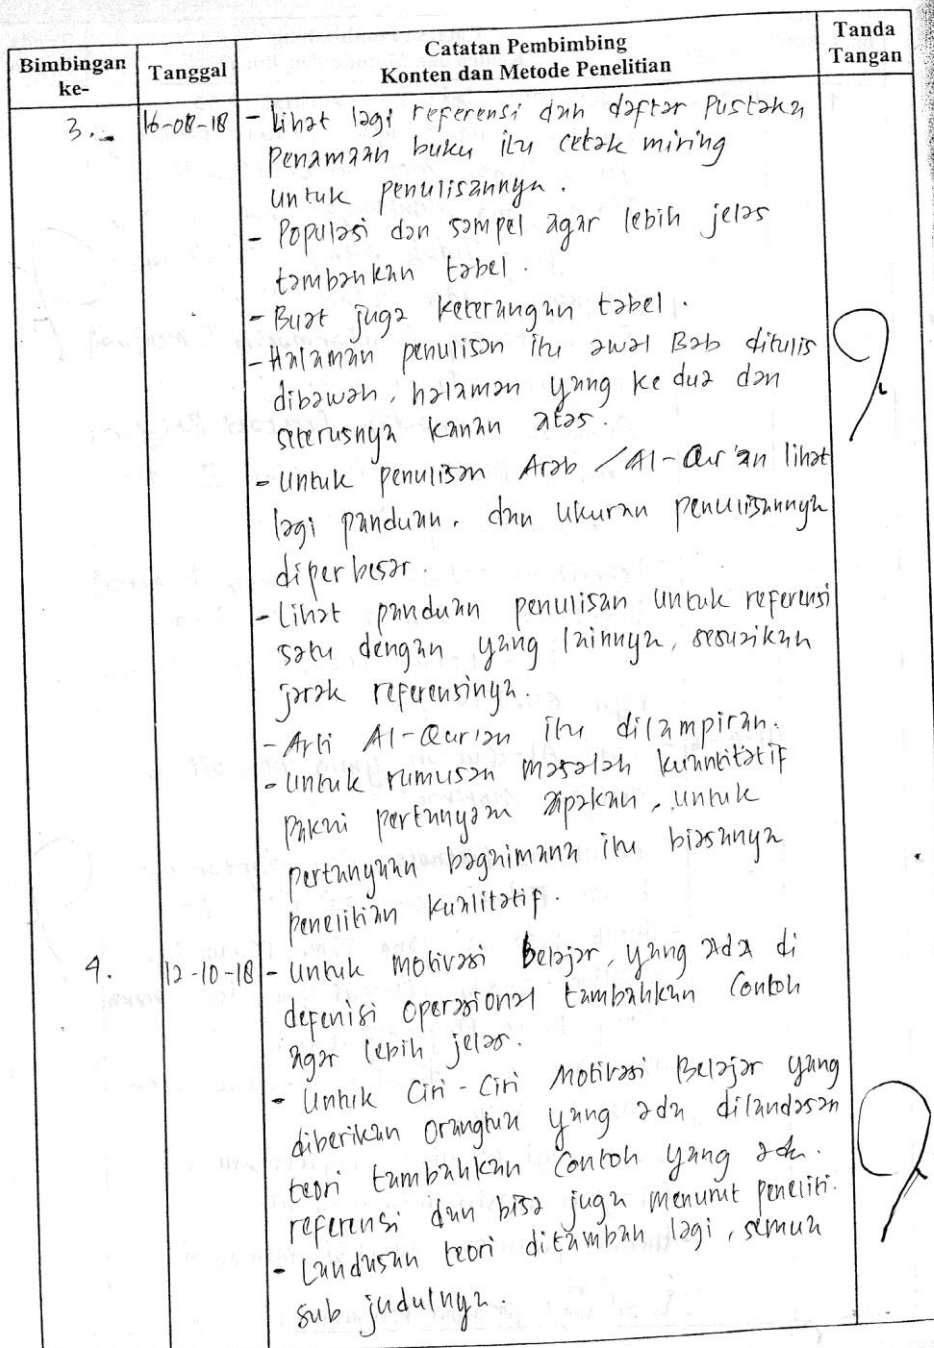 Bimbingan ke-
Tanggal
Catatan Pembimbing
Konten dan Metode Penelitian
Tanda Tangan
3. 16-08-18 - Lihat lagi referensi dan daftar Pustaka
Penamaan buku itu cetak miring
untuk penulisannya.
- Populasi dan sampel agar lebih jelas
tambahkan tabel.
- Buat juga keterangan tabel.
- Halaman penulisan itu awal Bab ditulis
dibawah, halaman yang ke dua dan
seterusnya kanan atas.
- Untuk penulisan Arab / Al-Qur'an lihat
lagi panduan. dan ukuran penulisannya
diperbesar.
- Lihat panduan penulisan untuk referensi
satu dengan yang lainnya, sesuaikan
jarak referensinya.
- Arti Al-Qur'an itu dilampiran.
- untuk rumusan masalah kuantitatif
Pakai pertanyaan apakah, untuk
pertanyaan bagaimana itu biasanya
penelitian kualitatif.
4. 12-10-18 - Untuk motivasi Belajar, yang ada di
defenisi operasional tambahkan Contoh
agar lebih jelas.
- Untuk Ciri-Ciri Motivasi Belajar yang
diberikan orangtua yang ada dilandasan
teori tambahkan Contoh yang ada.
referensi dan bisa juga menurut peneliti.
- Landasan teori ditambah lagi, semua
sub judulnya.